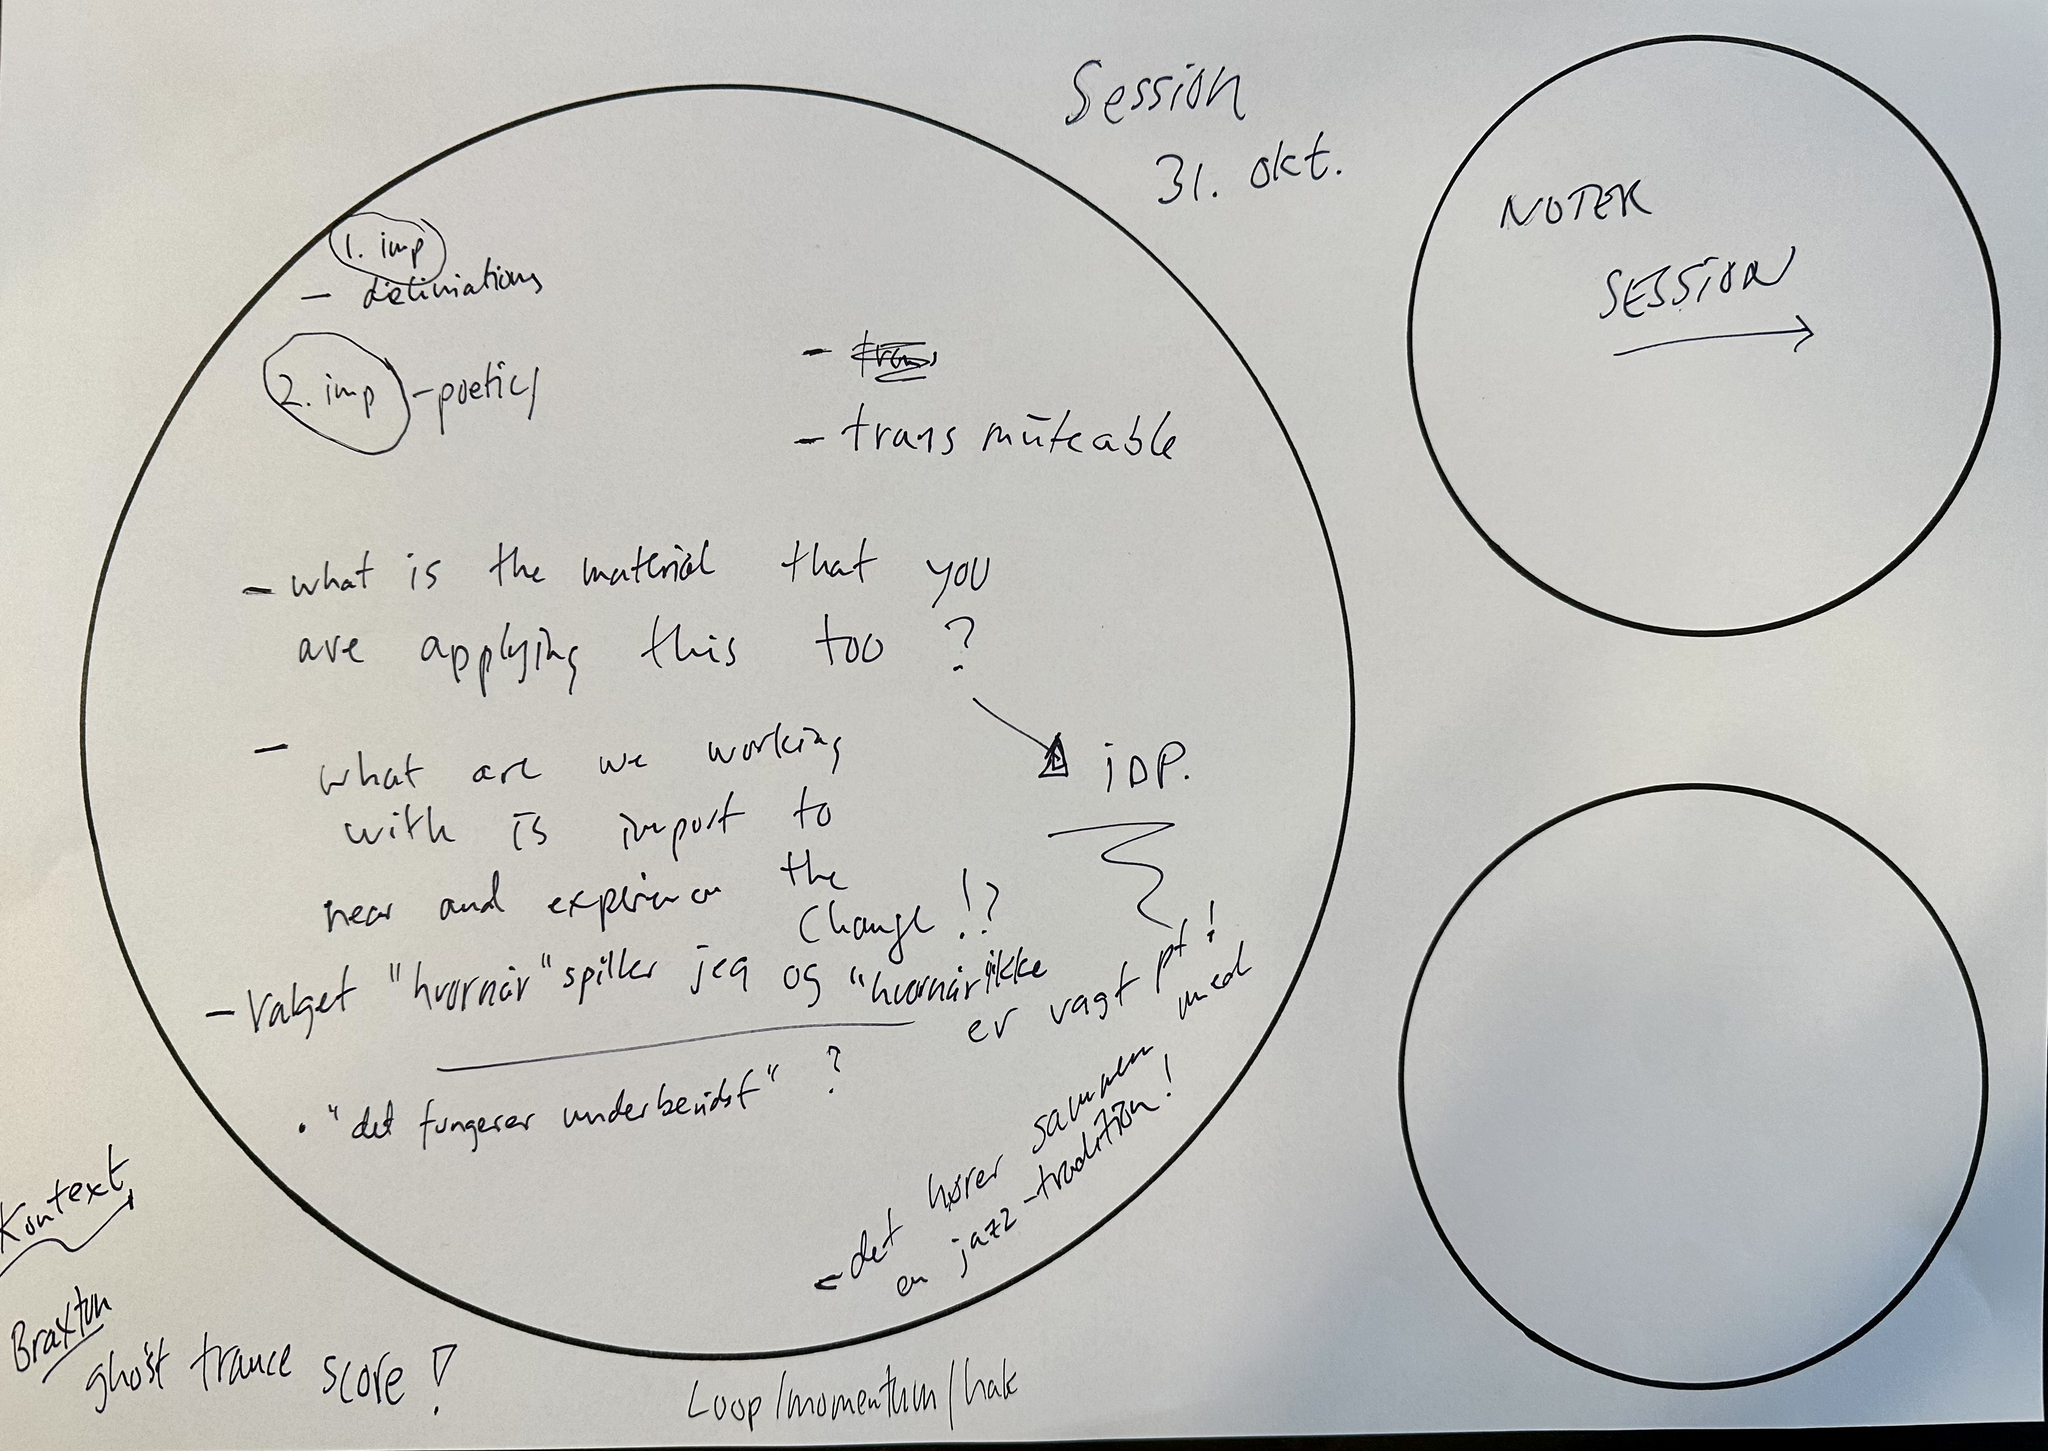 Session
31. okt.
NOTER
SESSION
1. imp
- delimiations
2. imp - poetics
- trans muteable
- what is the material that you
are applying this too ?
iDP.
- what are we working
with is import to
hear and experience the
change !?
- Valget "hvornår" spiller jeg og "hvornår ikke
er vagt pt !
• "det fungerer underbevidst" ?
- det hører sammen med
en jazz-tradition!
Kontext
Braxton
ghost trance score !
Loop/momentum/hak